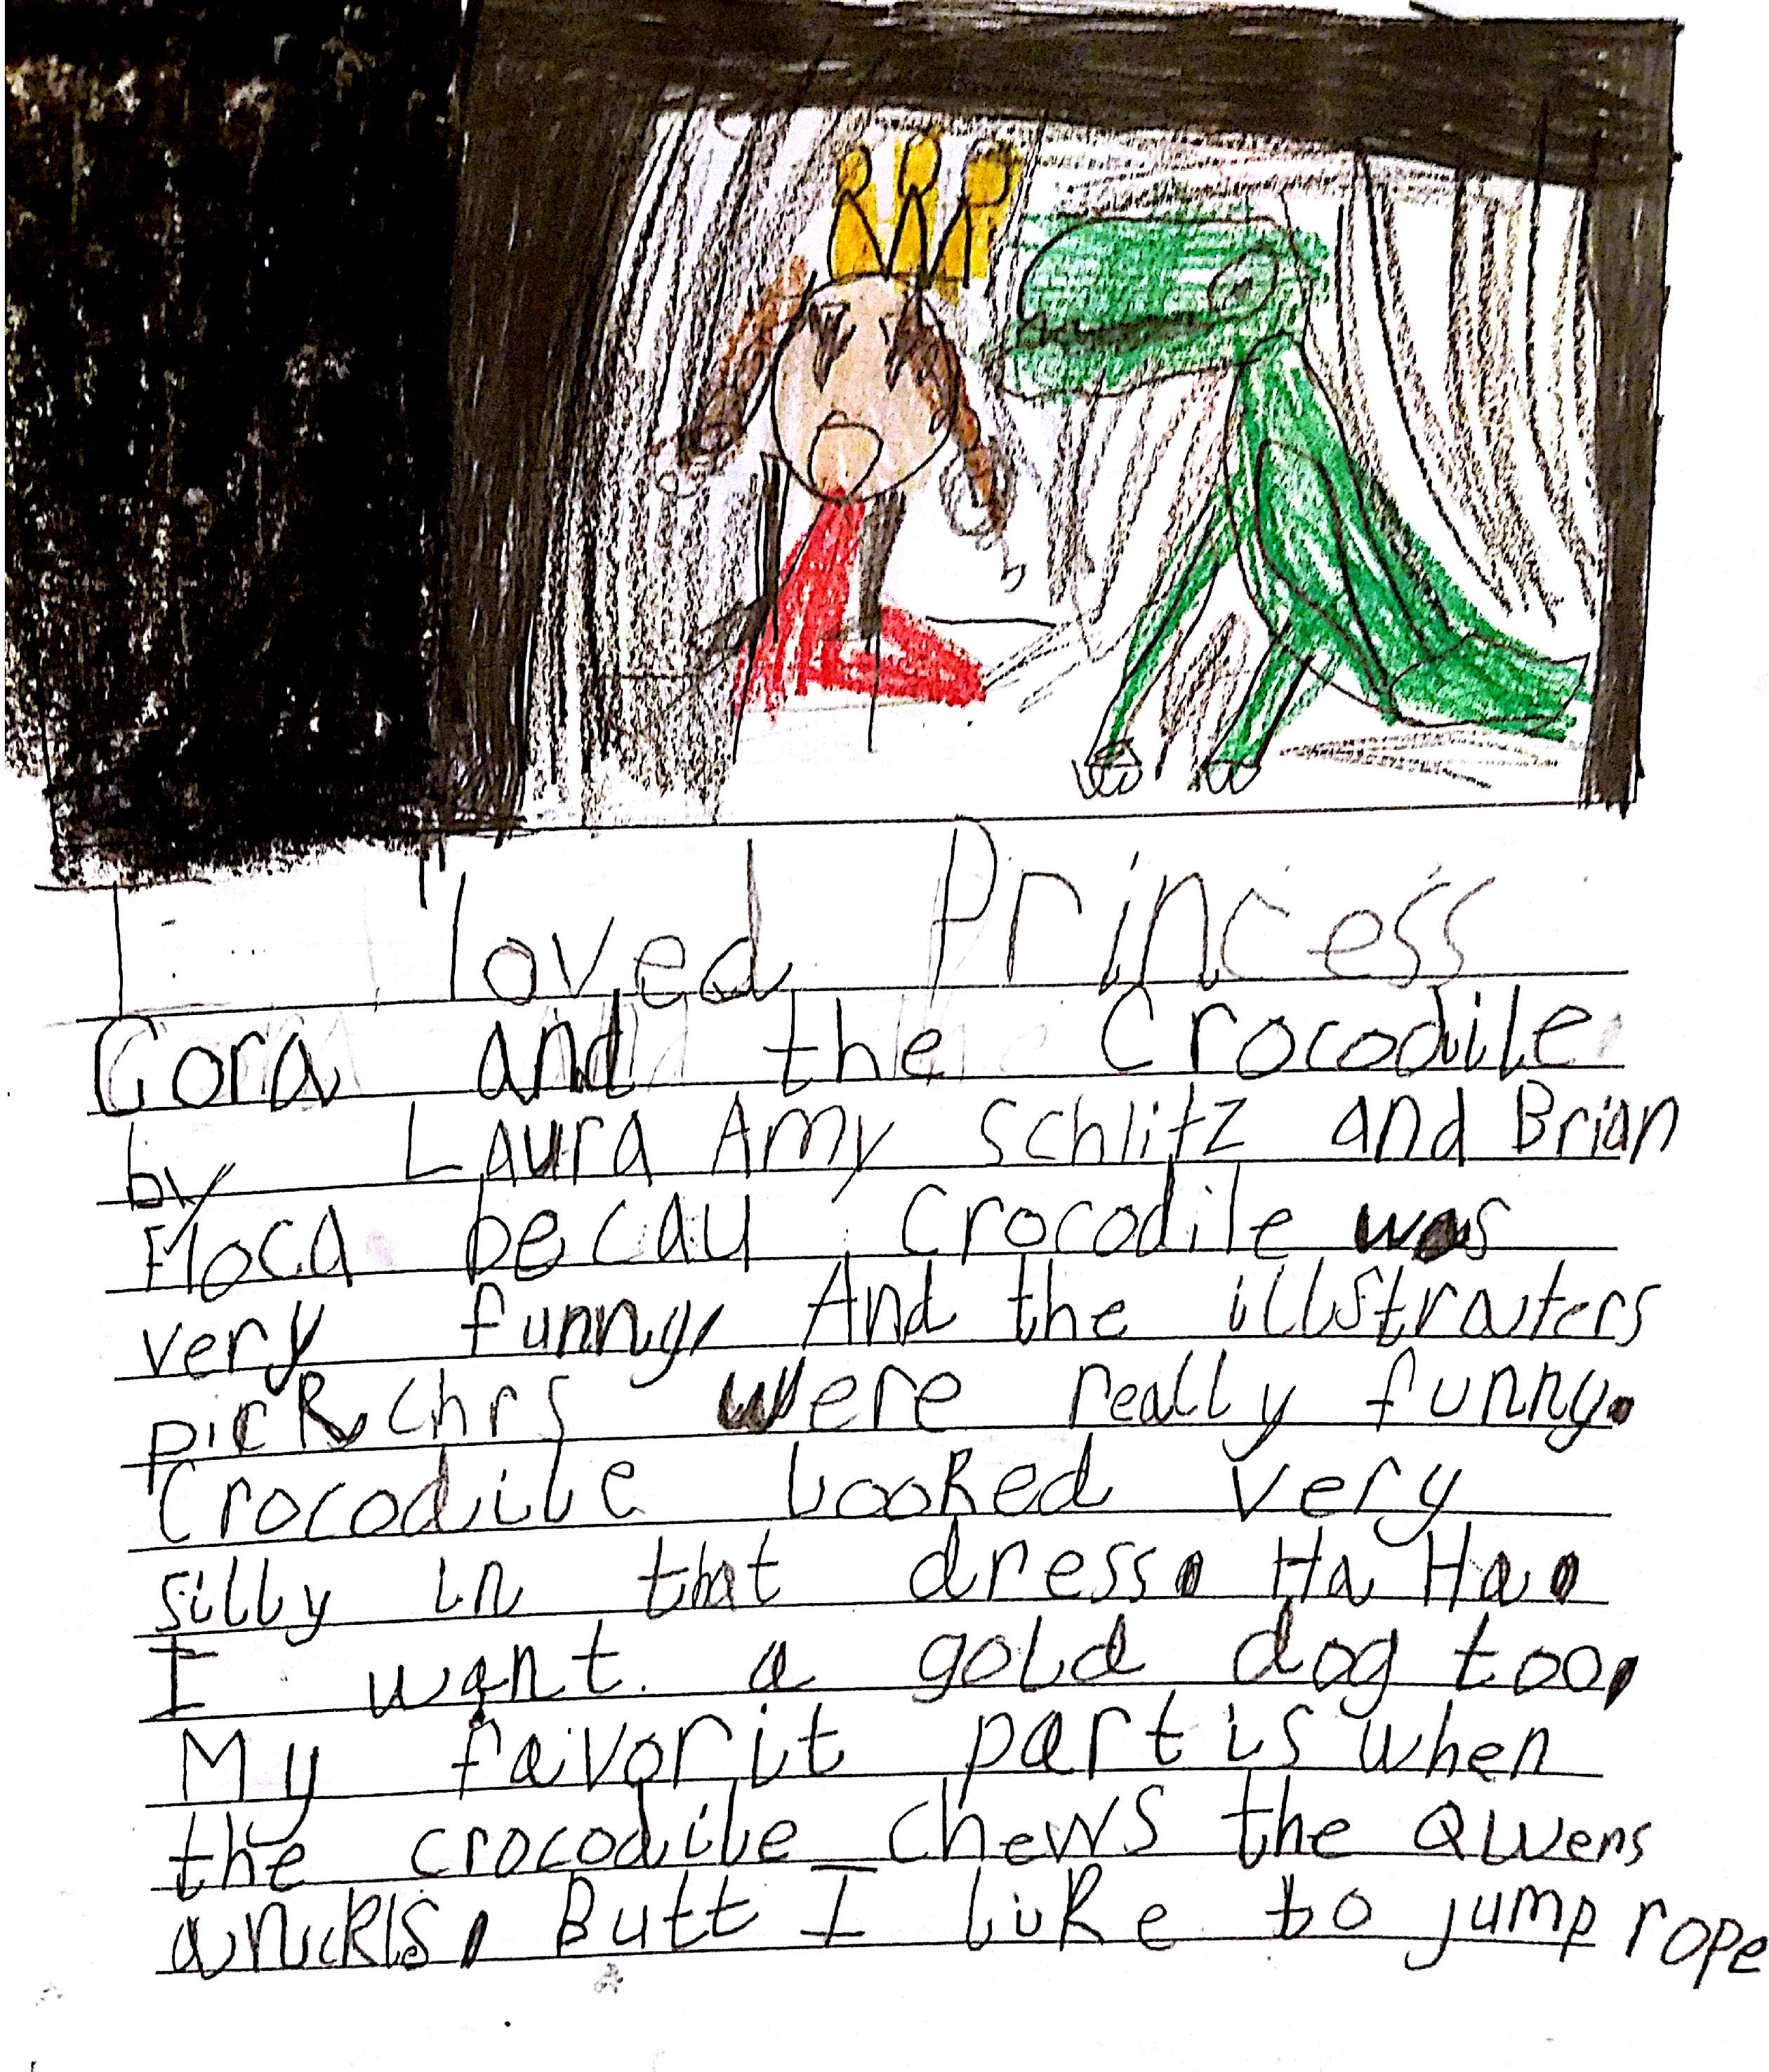 I loved Princess
Cora and the Crocodile
by Laura Amy Schlitz and Brian
Floca becau crocodile was
very funny, And the illstraters
pickchrs were really funny.
Crocodile looked very
silly in that dress. Ha Ha.
I want a gold dog too,
My favorit part is when
the crocodile chews the Qwens
anickls. Butt I like to jump rope